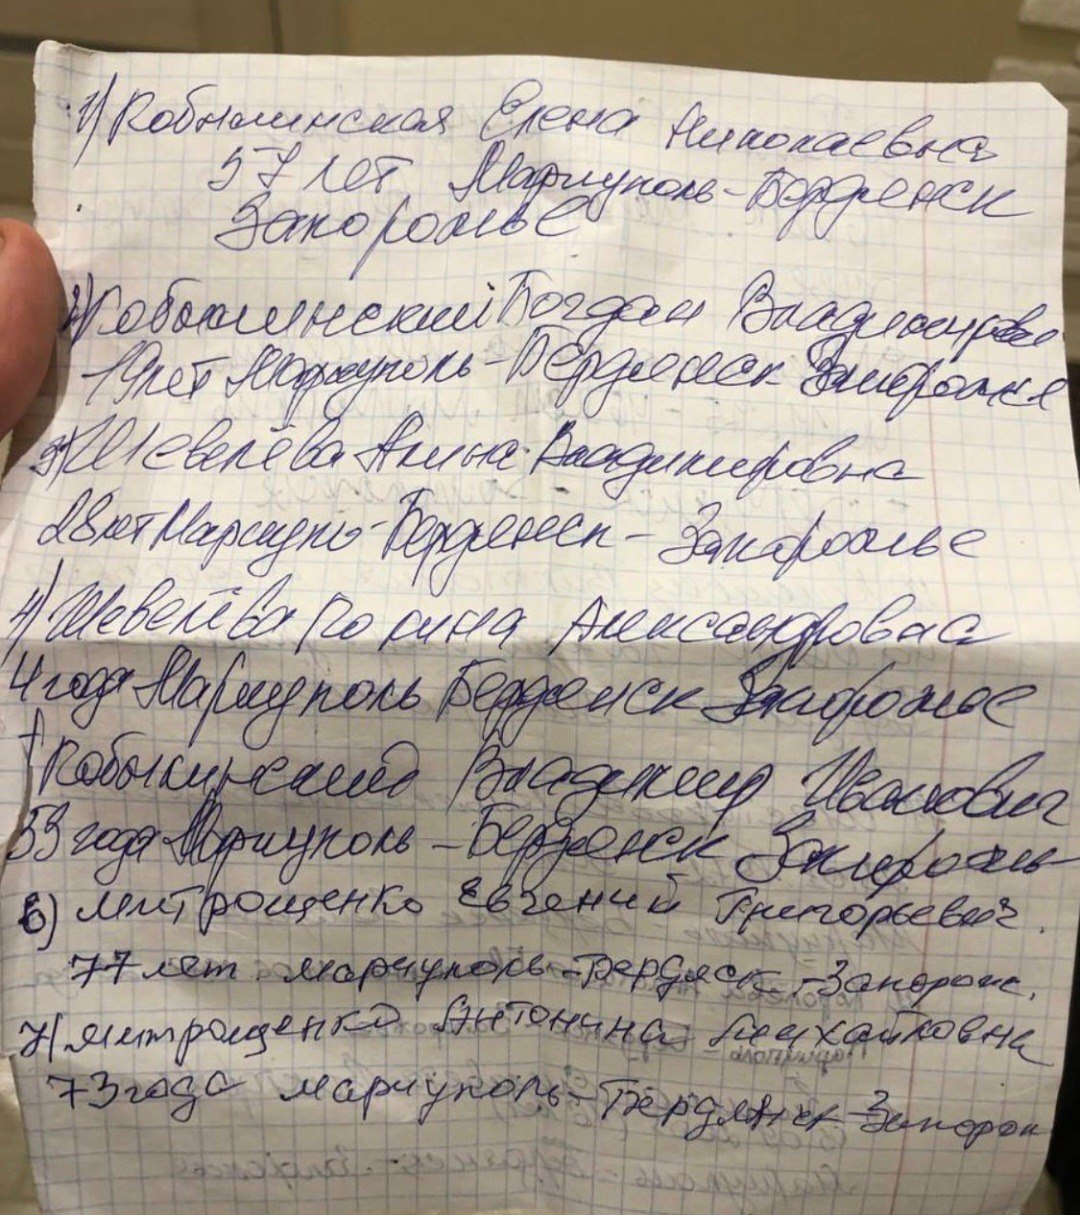 1) Кобылинская Елена Николаевна
57 лет Мариуполь-Бердянск
Запорожье
2) Кобылинский Богдан Владимирови
19 лет Мариуполь-Бердянск Запорожье
3) Шевелёва Алина Владимировна
28 лет Мариуполь-Бердянск - Запорожье
4) Шевелёва Полина Александровна
4 года Мариуполь Бердянск Запорожье
Кобылинский Владимир Иванович
года Мариуполь - Бердянск Запорожь
6) Митрощенко Евгений Григорьевич.
77 лет мариуполь-Бердяск-Запорож.
7) Митрощенко Антонина Михайловна
73 года мариуполь-Бердянск-Запорож